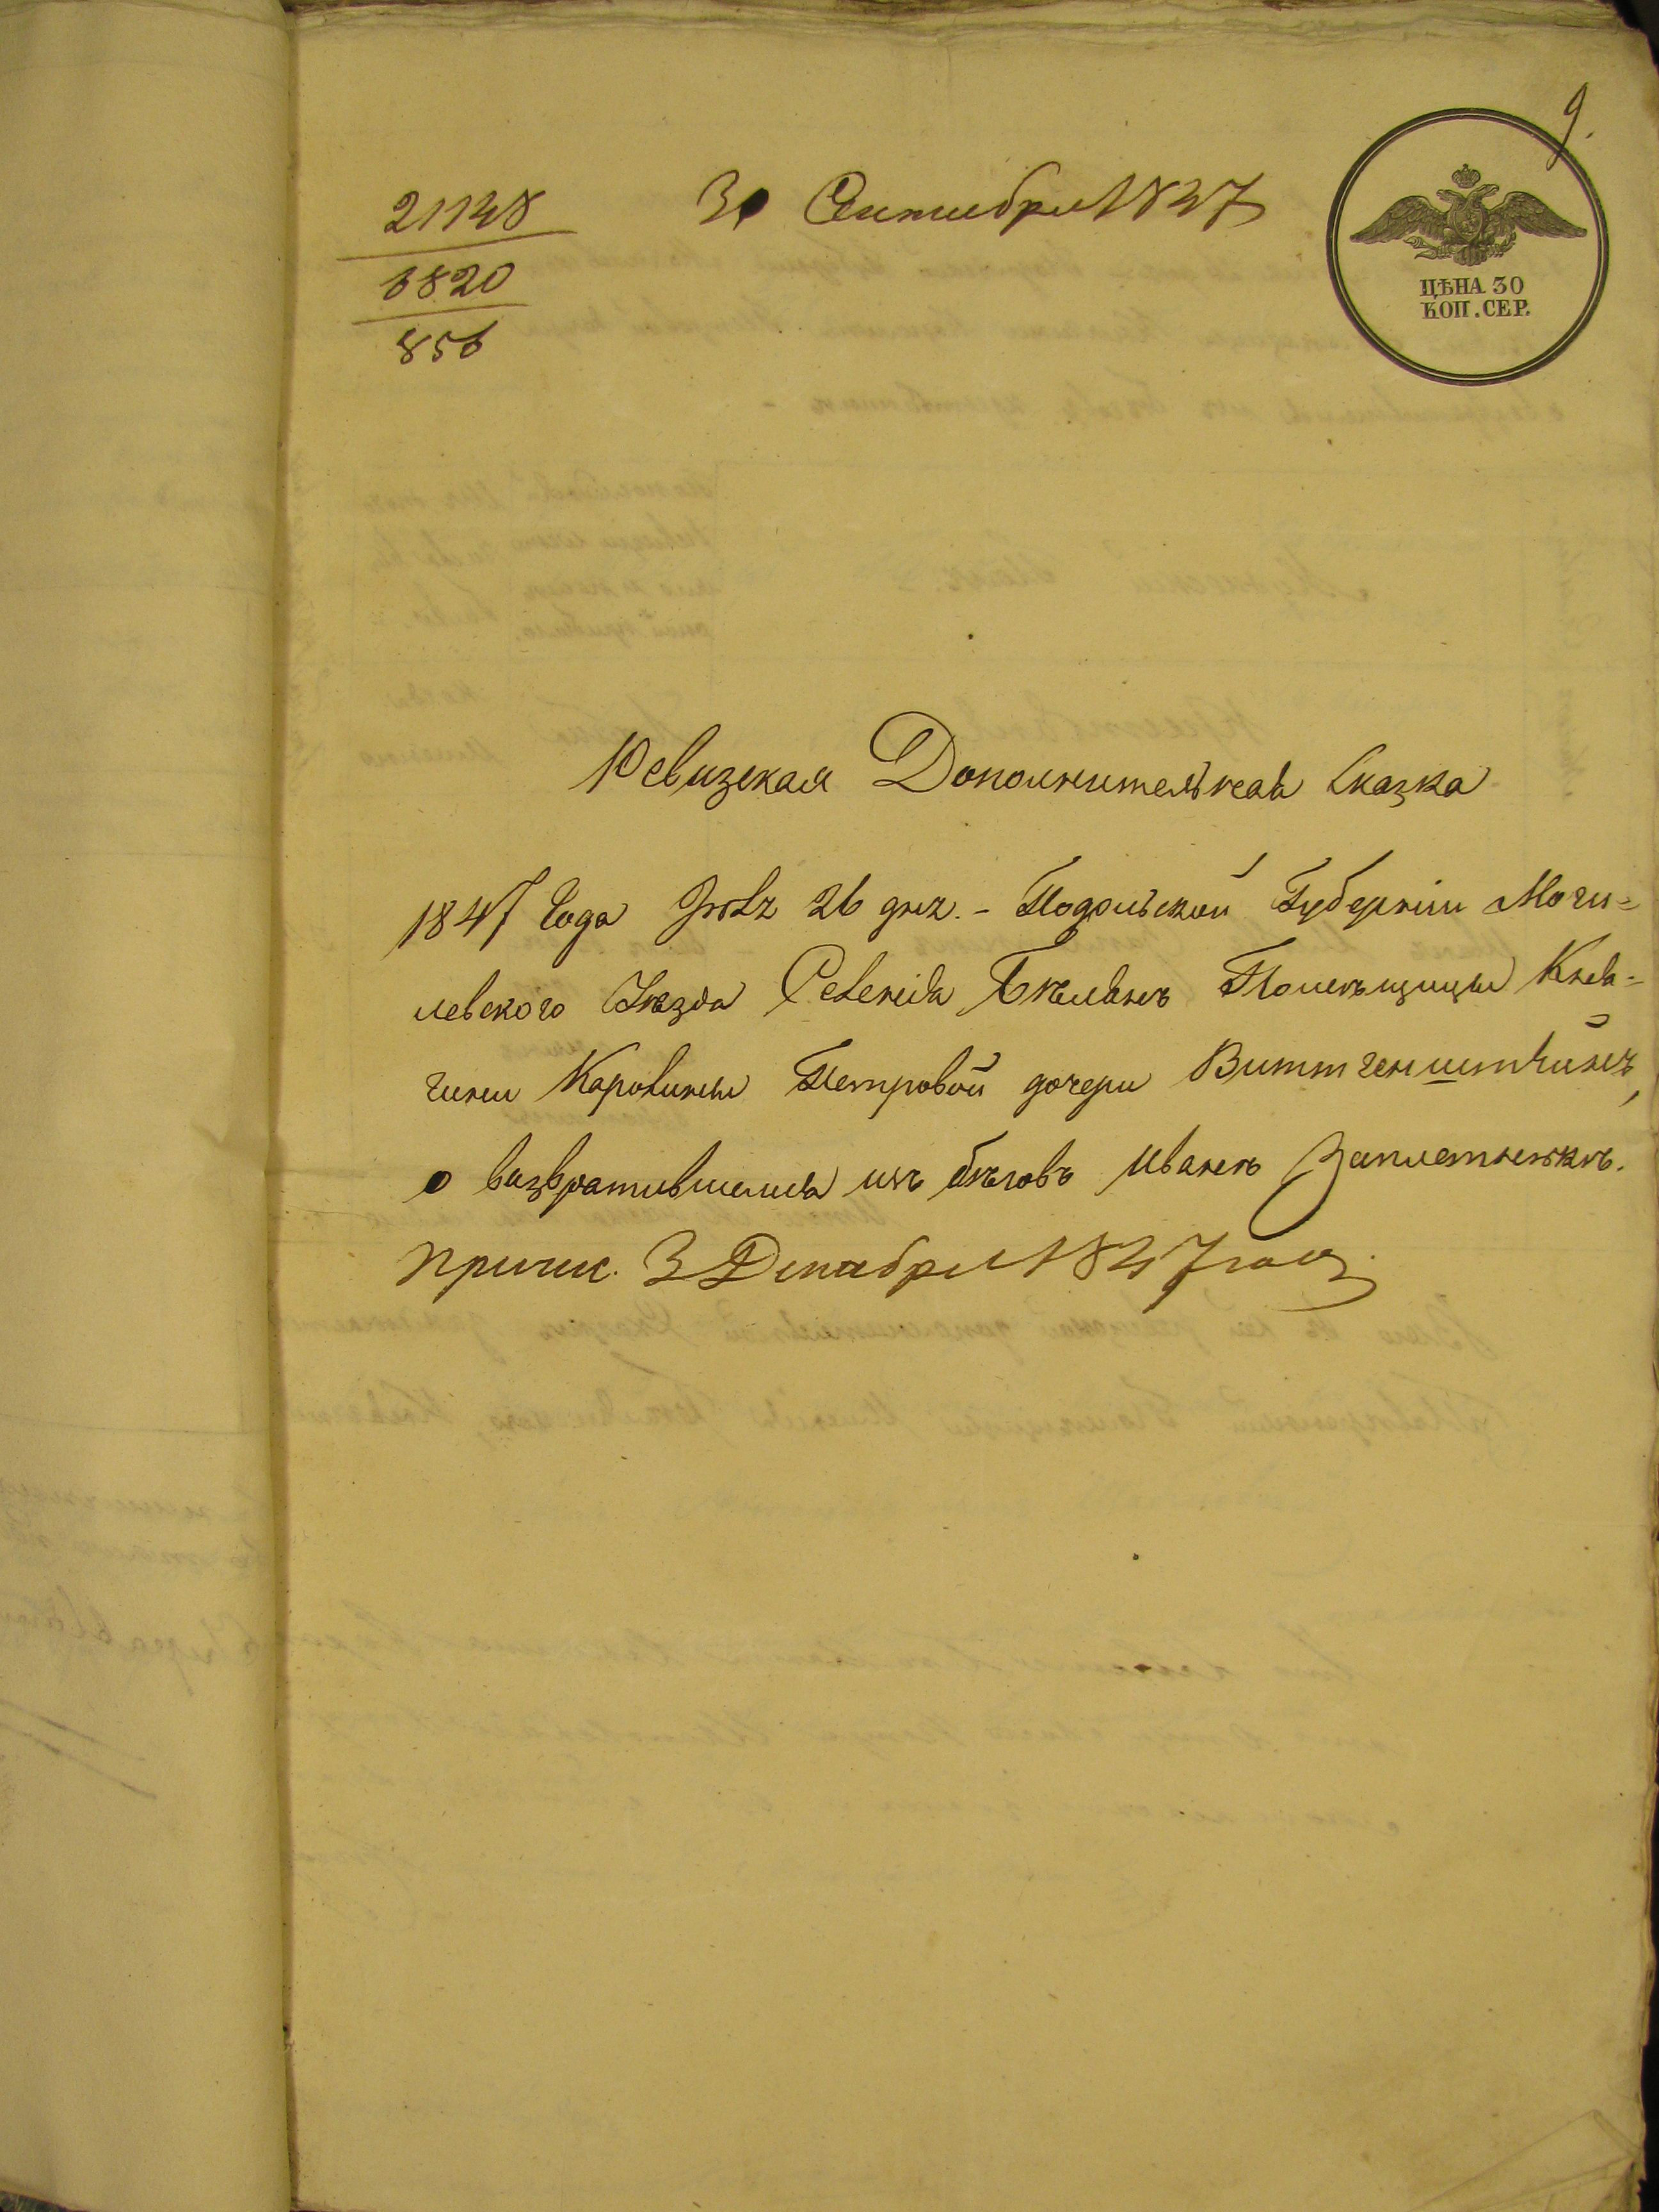 9.
21148
6820
856
30 Сентября 1847
ЦѢНА 30
КОП. СЕР.
Ревизская Дополнительная Сказка
1847 Года Іюля 26 дня. - Подольской Губерніи Моги=
левского Уѣзда Селенія Бѣлянъ Помѣщицы Кня=
гини Каролины Петровой дочери Виттгенштейнъ,
о возвратившемся изъ бѣговъ Иванѣ Заплетнюкѣ.
Причис. 3 Декабря 1847 года